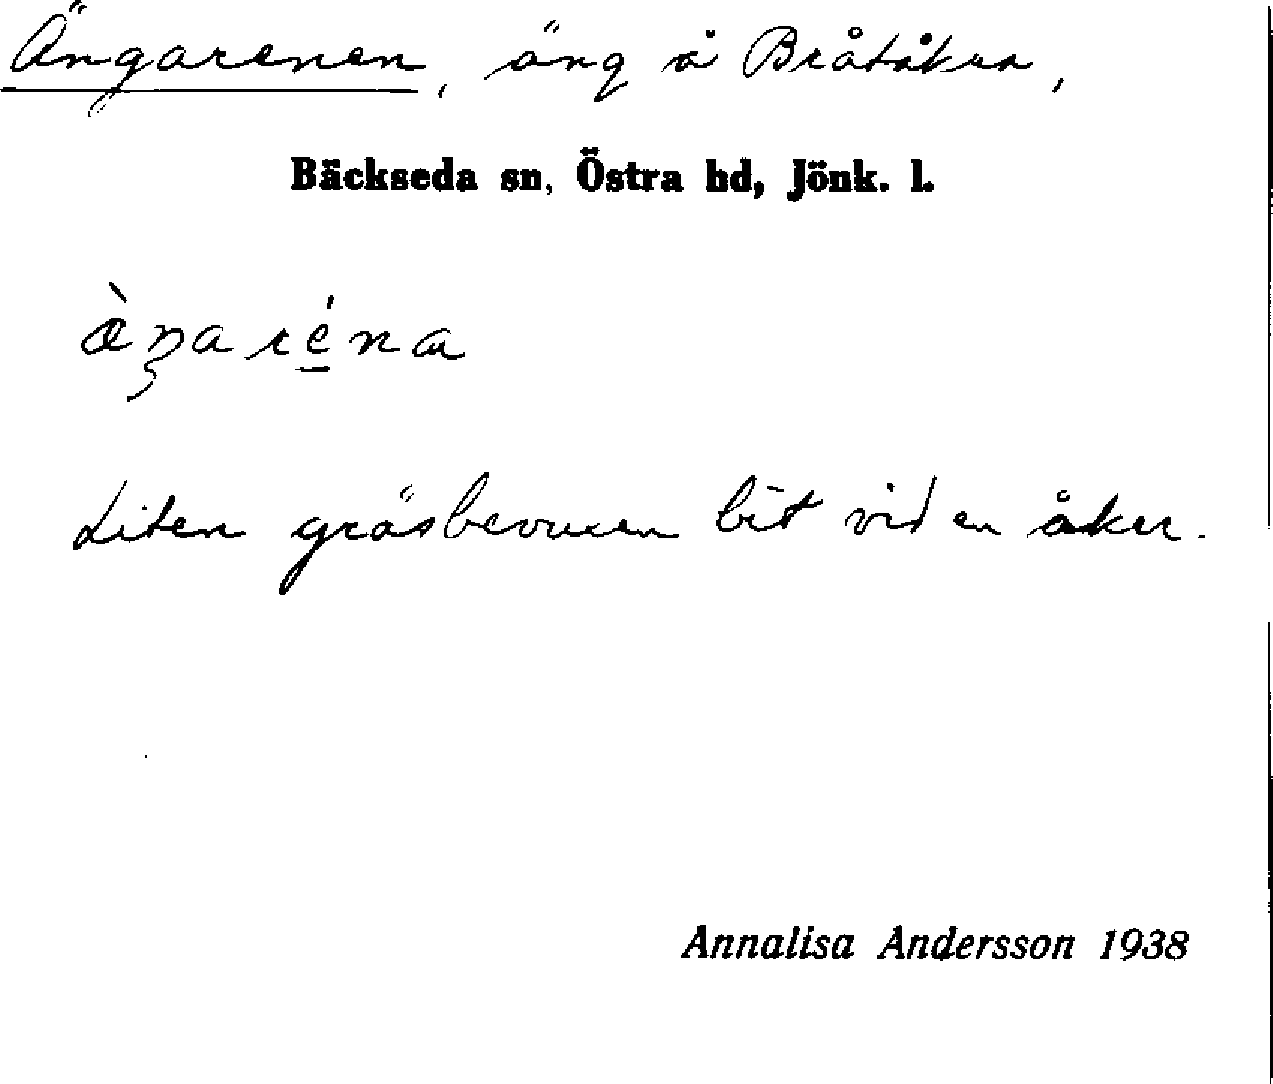 Ängarenen, äng å Bråtåkra,
Bäckseda sn, Östra hd, Jönk. l.
æ̀ŋaréna
Liten gräsbevuxen bit vid en åker.
Annalisa Andersson 1938